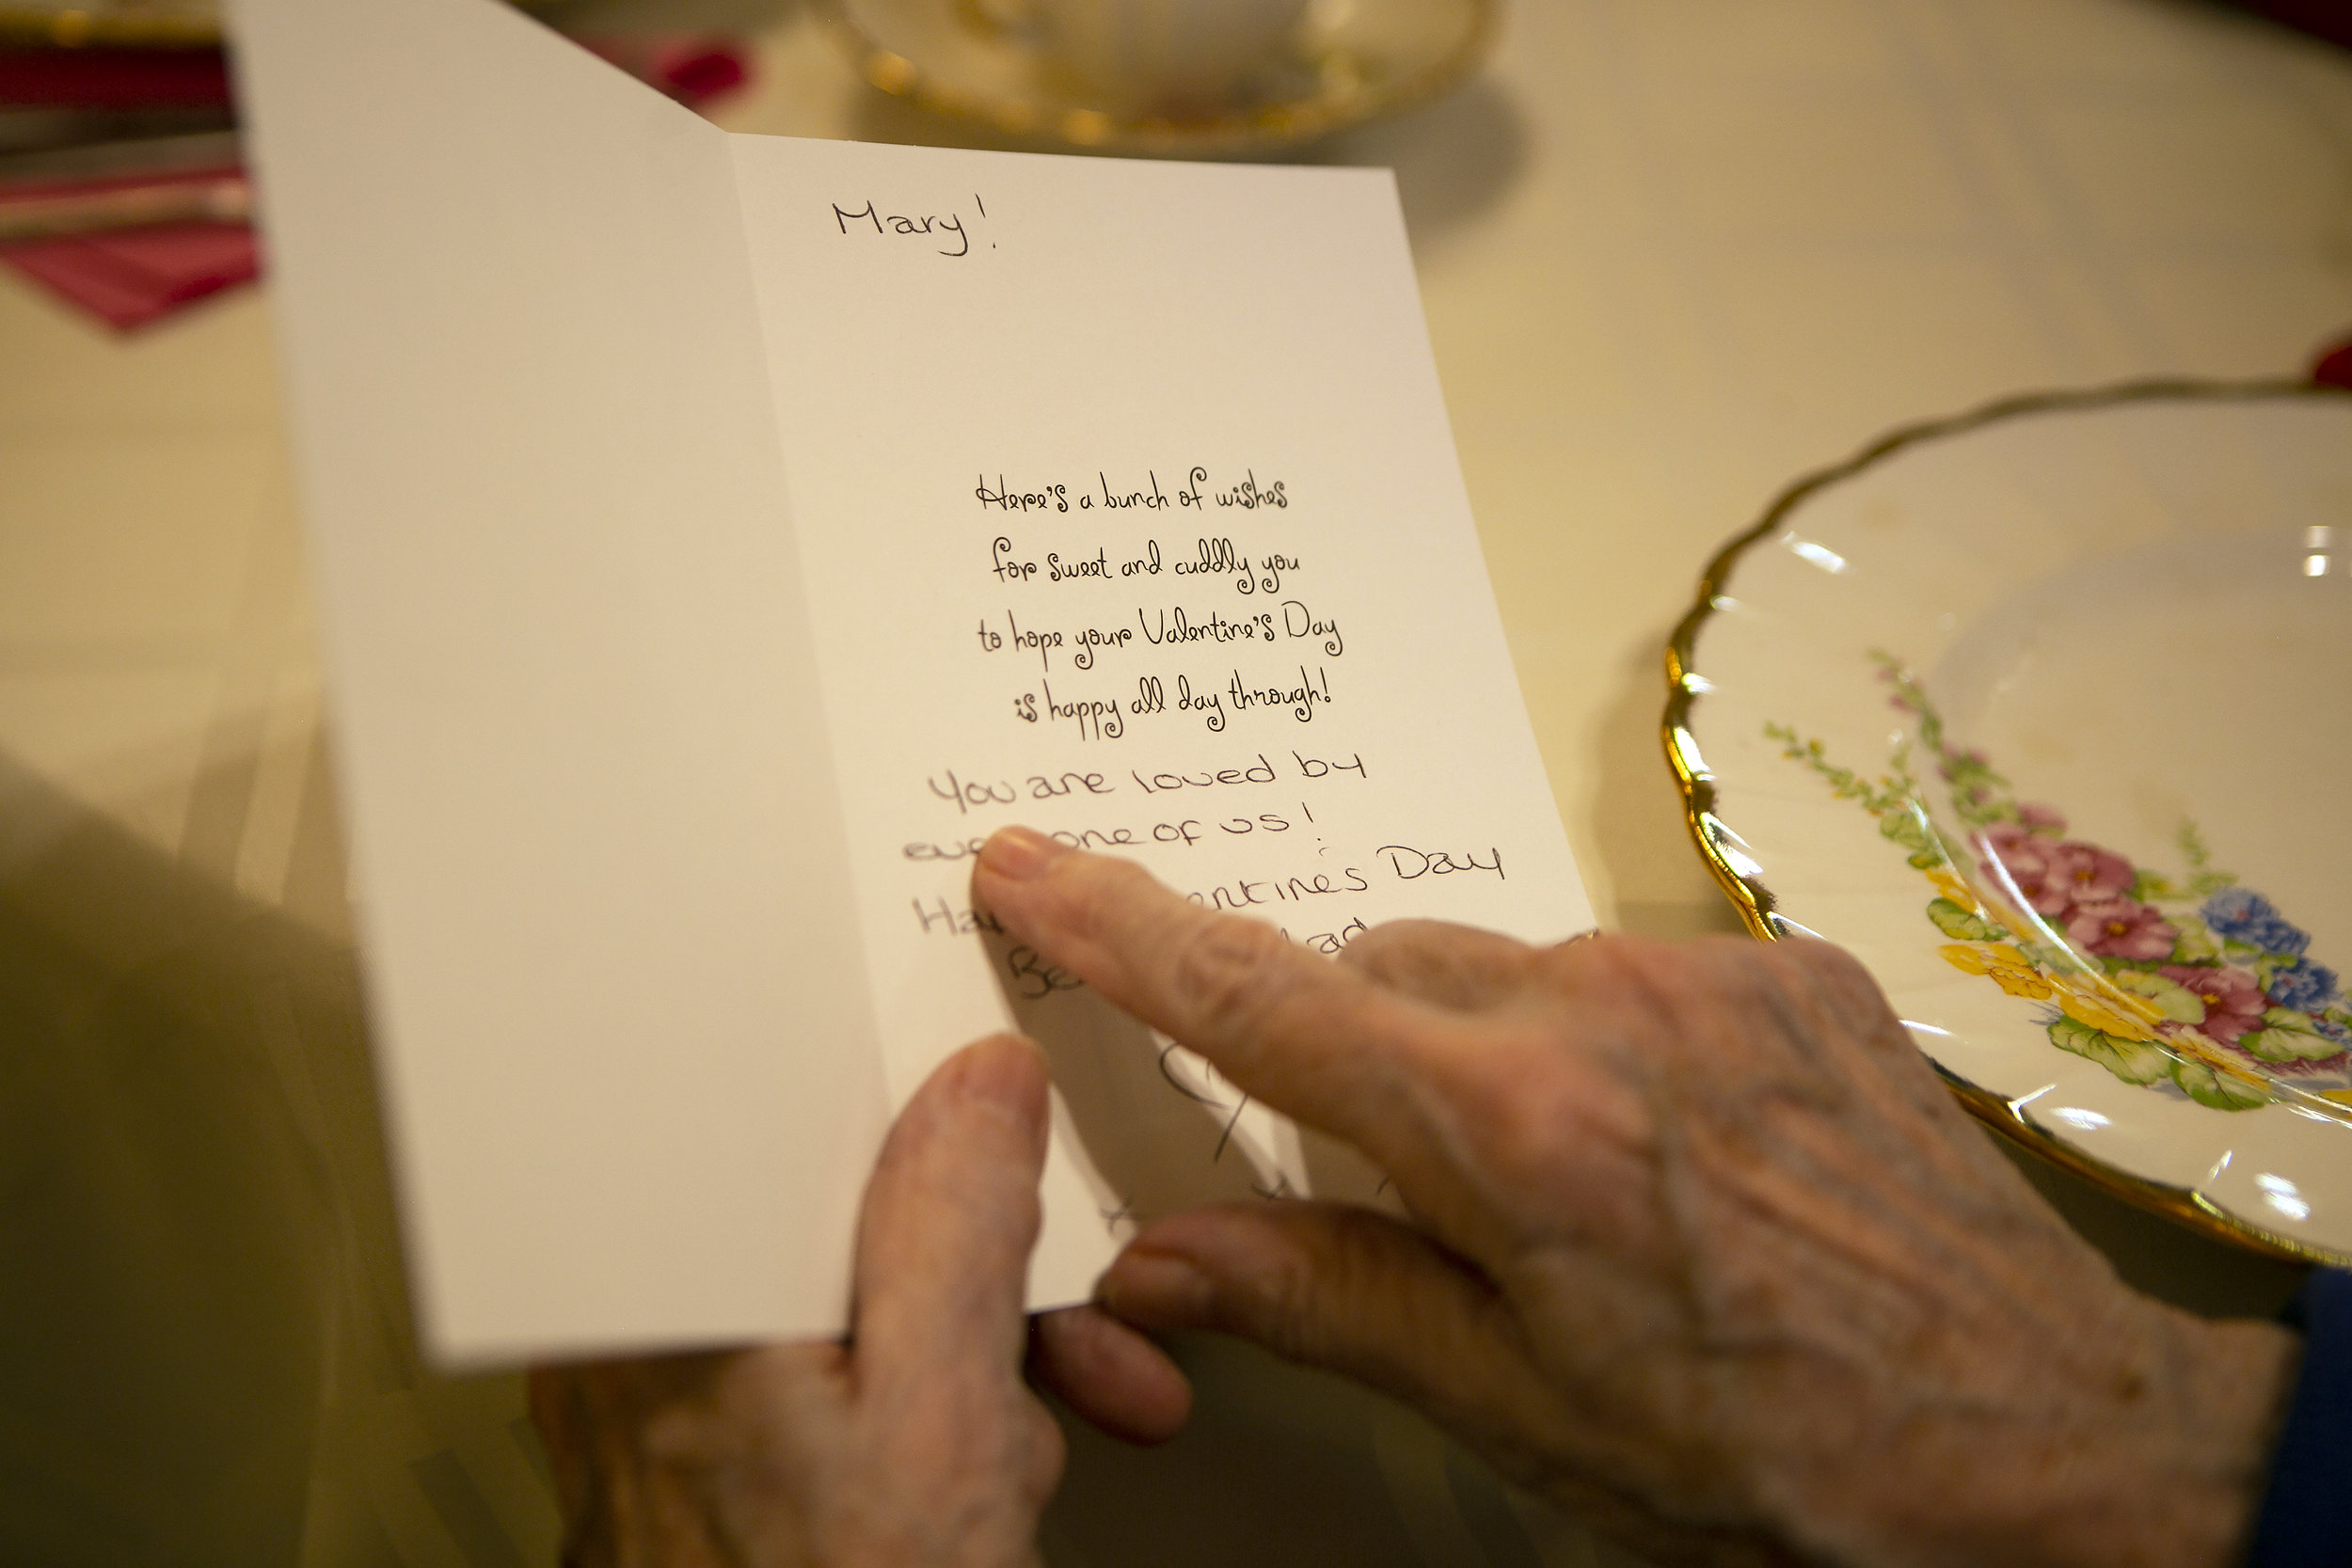 Mary!
Here's a bunch of wishes
for sweet and cuddly you
to hope your Valentine's Day
is happy all day through!
You are loved by
of us!
Day
x x